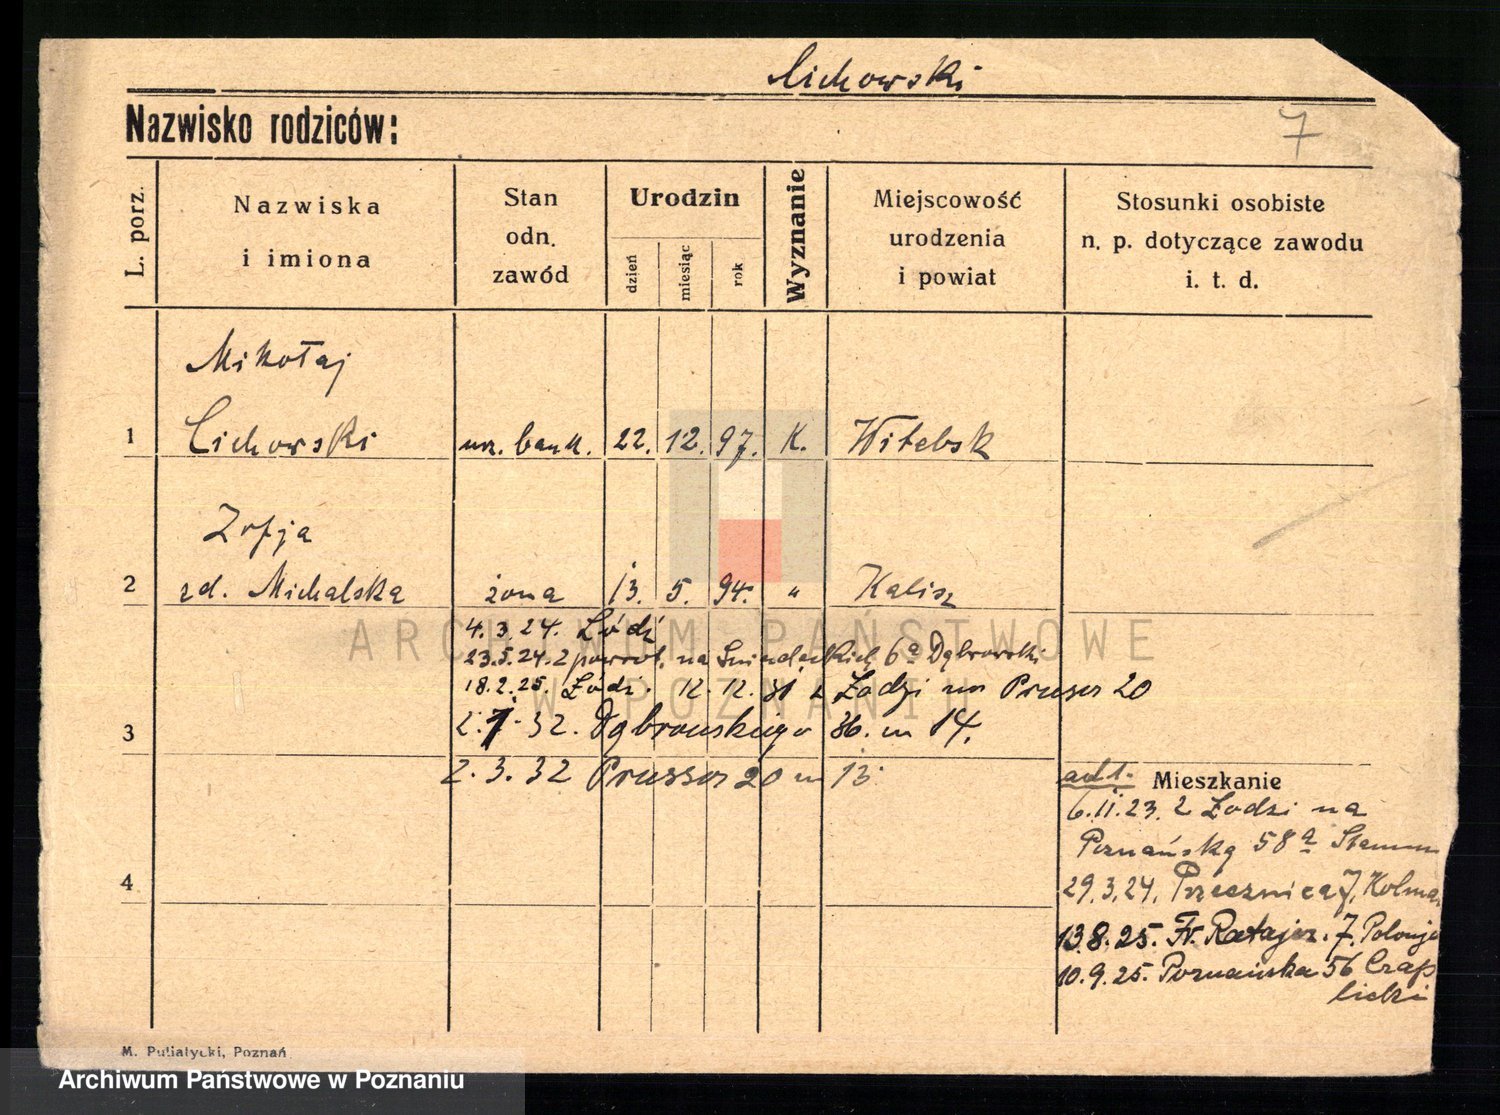 Cichowski
Nazwisko rodziców:
7
L. porz.
Nazwiska
i imiona
Stan
odn.
zawód
Urodzin
dzień
miesiąc
rok
Wyznanie
Miejscowość
urodzenia
i powiat
Stosunki osobiste
n. p. dotyczące zawodu
i. t. d.
Mikołaj
1 Cichowski urz. bank. 22. 12. 97. K. Witebsk
Zofja
2 zd. Michalska żona 13. 5. 94. " Kalisz
4.3.24. Łódź
23.5.24. z powrot. na Śniadeckich 6a Dąbrowski
18.2.25. Łódź. 12.12.31 z Łodzi na Prusa 20
3 2.1.32. Dąbrowskiego 36. m 14.
2.3.32 Prussa 20 m 13.
ad 1. Mieszkanie
6.11.23. z Łodzi na
Poznańską 58a
4 29.3.24. Przecznica 7,
13.8.25. Fr. Ratajcz. 7.
10.9.25. Poznańska 56 Czap
licki
M. Putiatycki, Poznań
ARCHIWUM PAŃSTWOWE
W POZNANIU
Archiwum Państwowe w Poznaniu